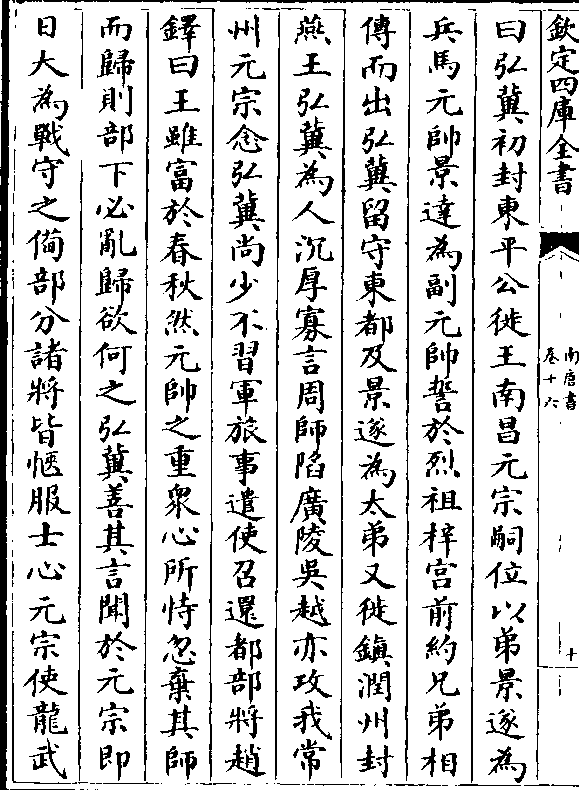 欽定四庫全書
南唐書
卷十六
十
曰弘冀初封東平公徙王南昌元宗嗣位以弟景遂為
兵馬元帥景達為副元帥誓於烈祖梓宫前約兄弟相
傳而出弘冀留守東都及景遂為太弟又徙鎮潤州封
燕王弘冀為人沉厚寡言周師陷廣陵吳越亦攻我常
州元宗念弘冀尚少不習軍旅事遣使召還都部將趙
鐸曰王雖富於春秋然元帥之重衆心所恃忽棄其師
而歸則部下必亂歸欲何之弘冀善其言聞於元宗即
日大為戰守之備部分諸將皆愜服士心元宗使龍武